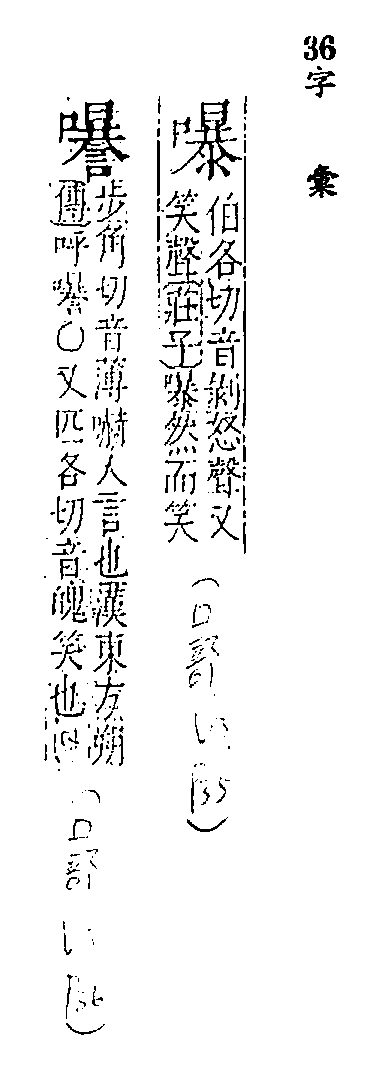 36 字彙
嚗
伯各切音剝怒聲又
笑聲莊子嚗然而笑
(口部
㘐
步角切音薄嚇人言也漢東方朔
傳呼㘐〇又匹各切音魄笑也
(口部